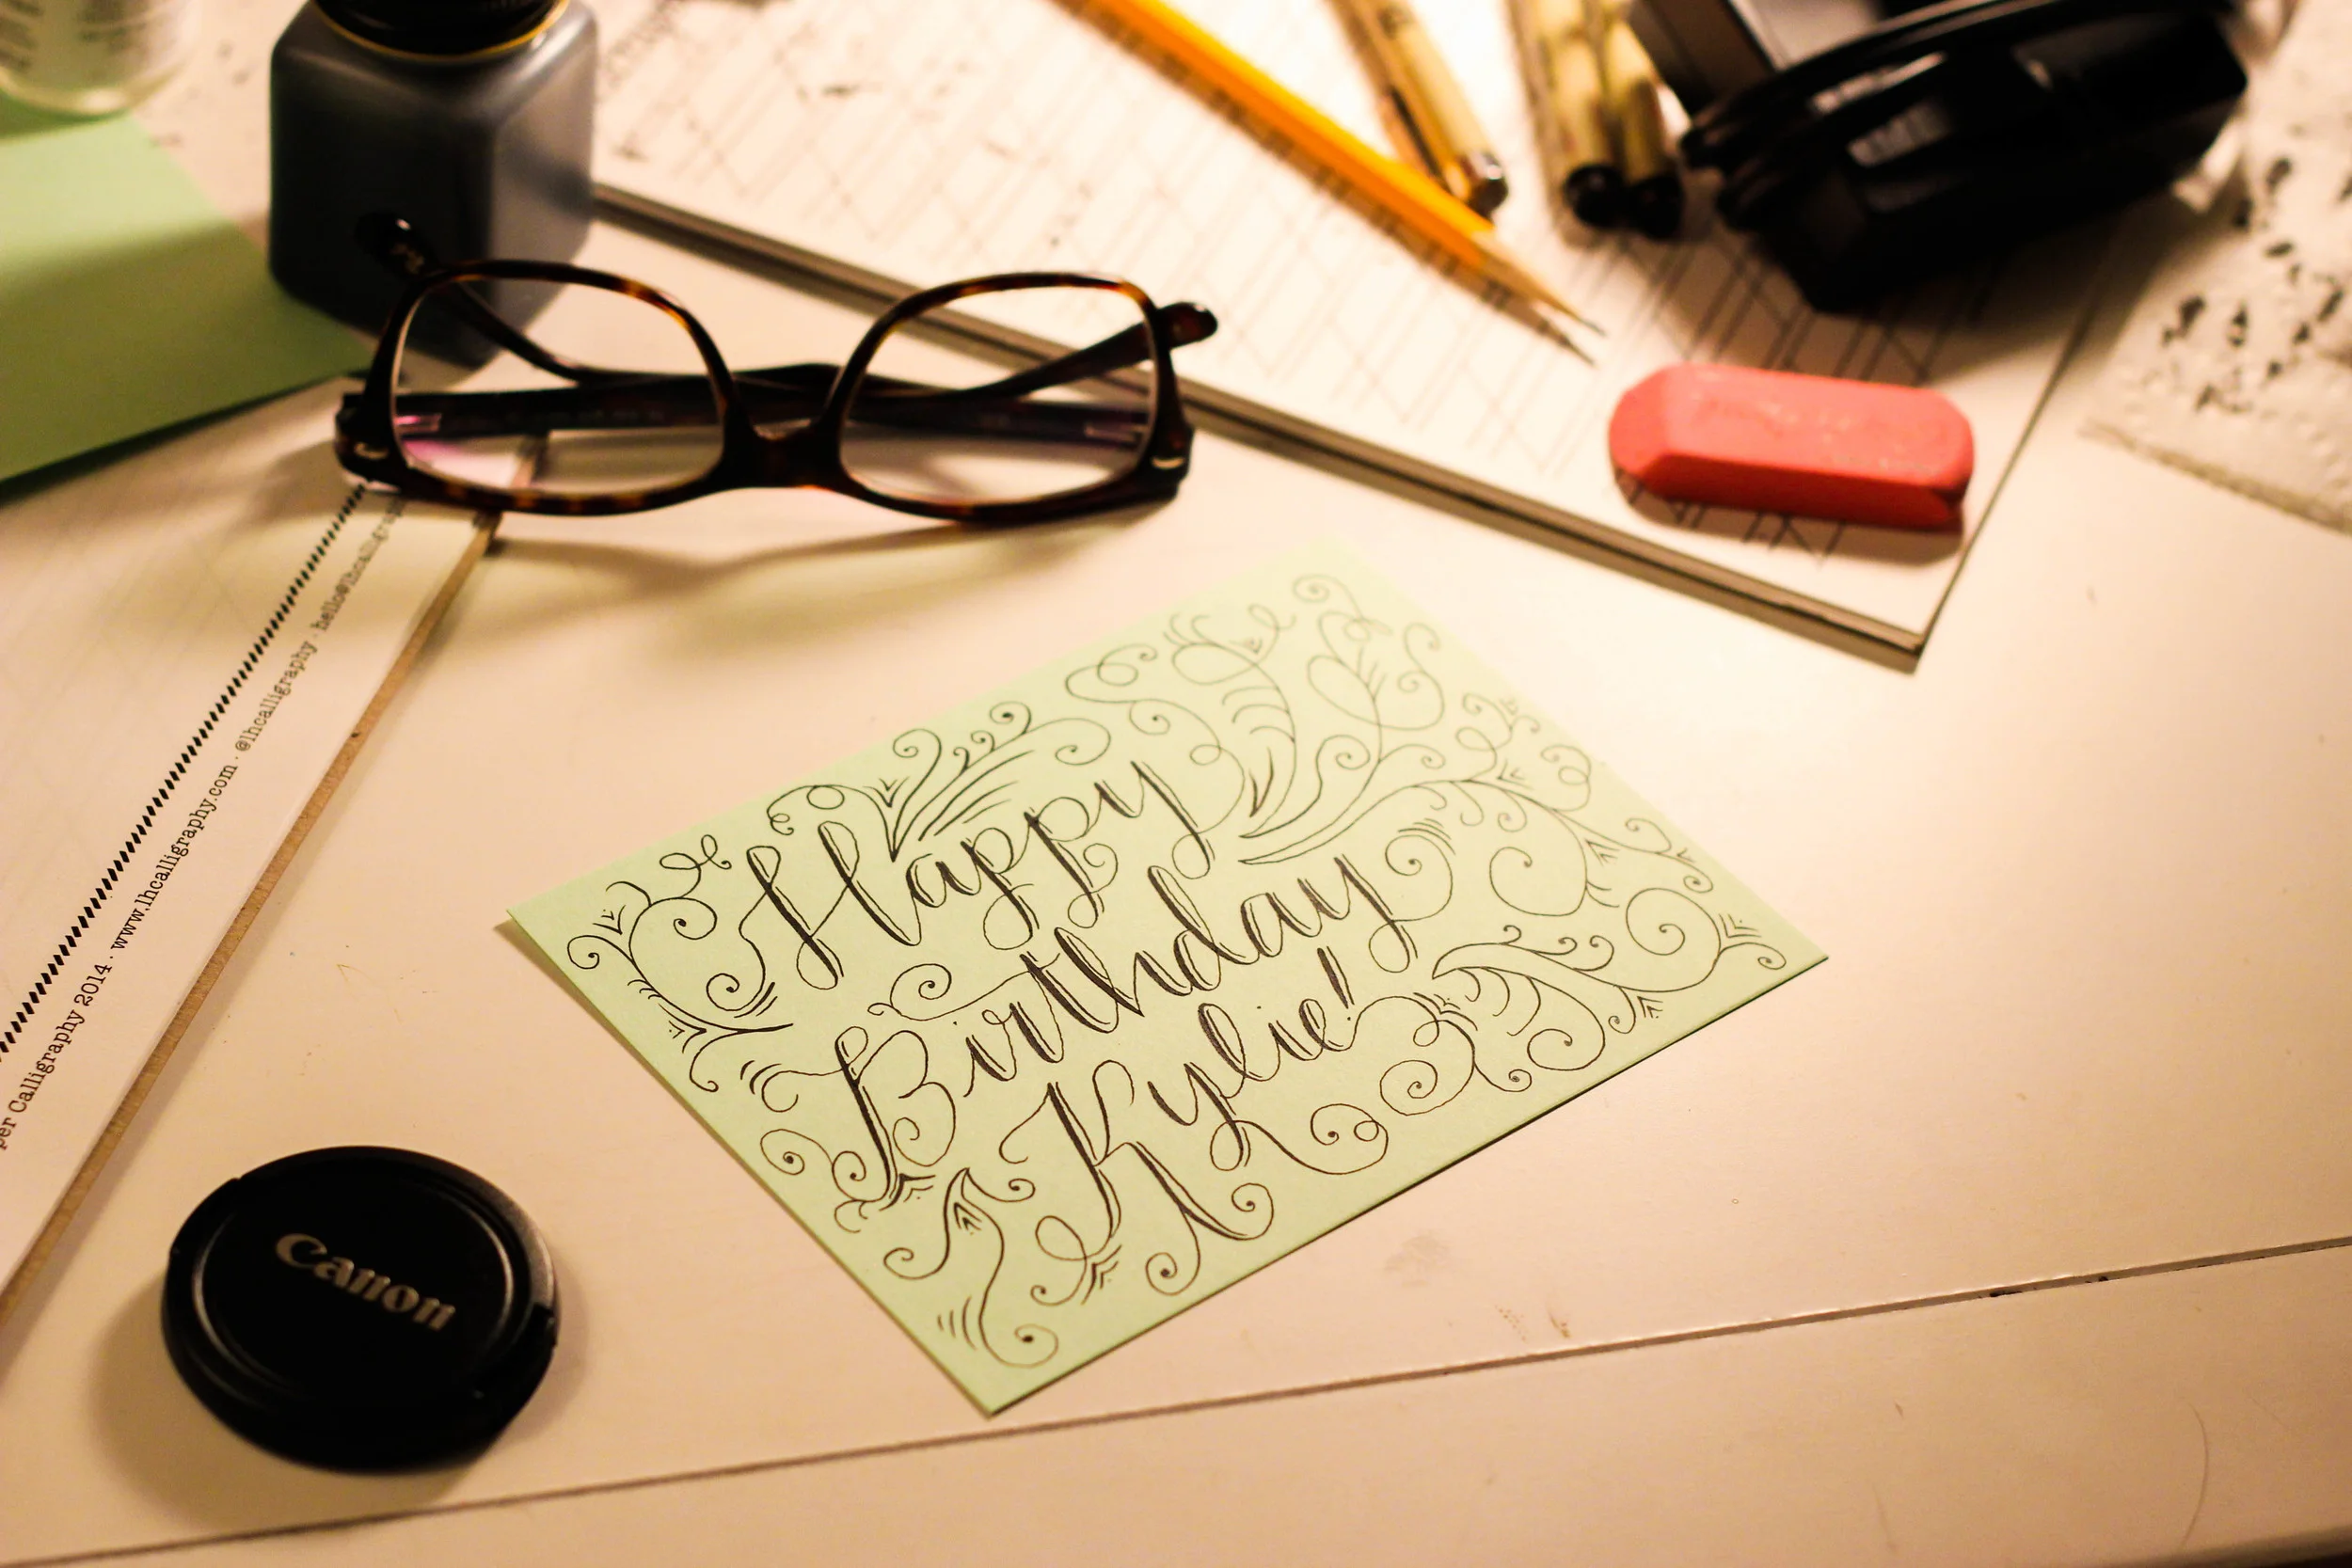 Happy
Birthday
Kylie!
per Calligraphy 2014 · www.lhcalligraphy.com · @lhcalligraphy ·
Canon